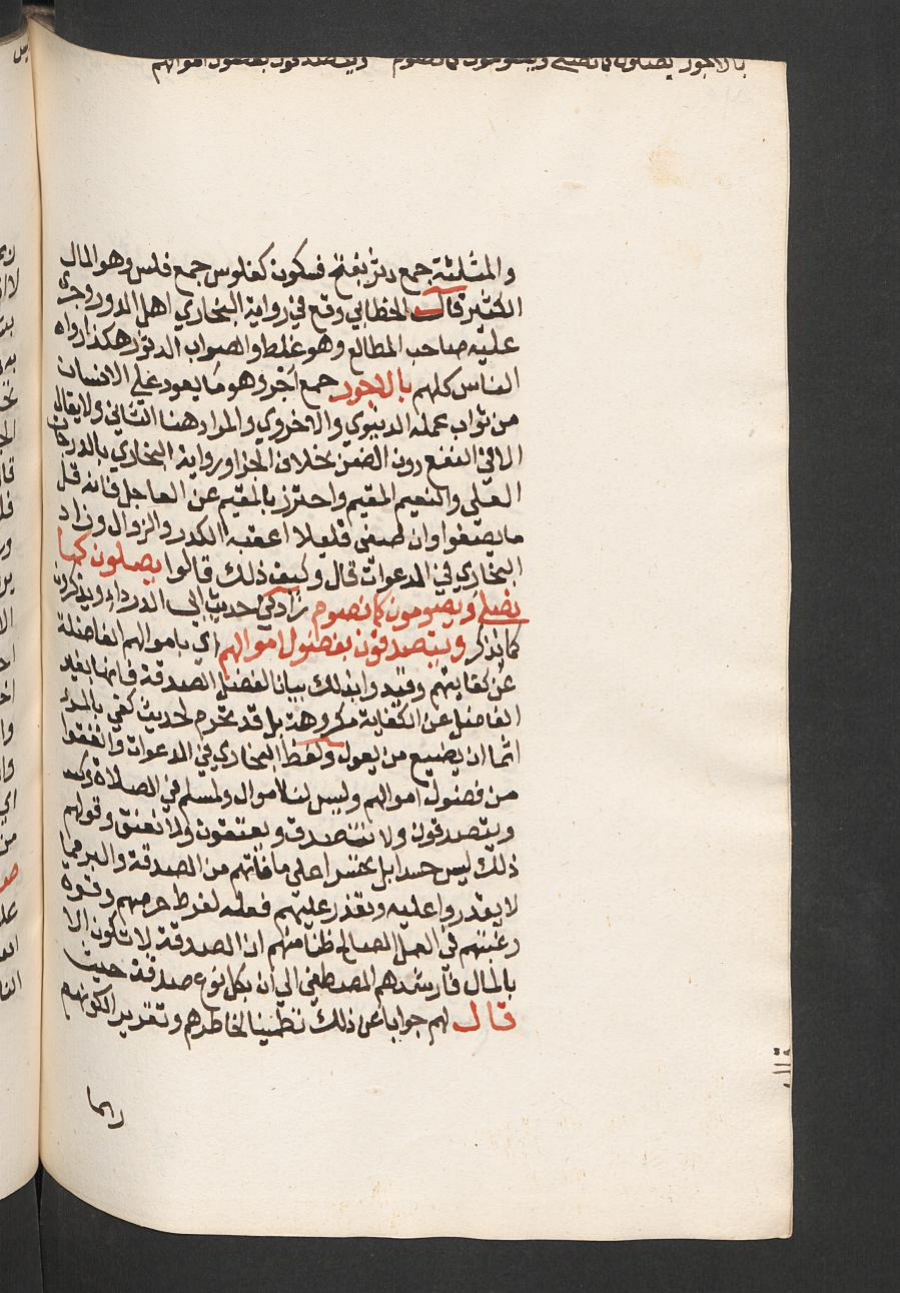 بالاجور يصلون كما نصلي ويصومون كما نصوم ويتصدقون بفضول اموالهم
والمثلثة جمع دثر بفتح فسكون كفلوس جمع فلس وهو المال
الكثير قال الخطابي وقع في رواية البخاري اهل الدور وجرى
عليه صاحب المطالع وهو غلط والصواب الدثور هكذا رواه
الناس كلهم بالاجور جمع اجر وهو ما يعود علي الانسان
من ثواب عمله الدنيوي والاخروي والمراد هنا الثاني ولا يقال
الا في النفع دون الضر بخلاف الجزا ورواية البخاري بالدرجات
العلي والنعيم المقيم واحترز بالمقيم عن العاجل فانه قل
ما يصفوا وان صفي قليلا اعقبه الكدر والزوال وزاد
البخاري في الدعوات قال وكيف ذلك قالوا يصلون كما
نصلي ويصومون كما نصوم زاد في حديث ابي الدرداء ويذكرون
كما نذكر ويتصدقون بفضول اموالهم اي باموالهم الفاضلة
عن كفايتهم وقيدوا بذلك بيانا لفضل الصدقة فانها بغير
الفاضل عن الكفاية مكروهة بل قد تحرم لحديث كفي بالمرء
اثما ان يضيع من يعول ولفظ البخاري في الدعوات وانفقوا
من فضول اموالهم وليس لنا اموال ولمسلم في الصلاة
ويتصدقون ولا نتصدق ويعتقون ولا نعتق وقولهم
ذلك ليس حسدا بل تحسرا على ما فاتهم من الصدقة والبر مما
لا يقدروا عليه وتعذر عليهم فعله لفرط حرصهم وقوة
رغبتهم في العمل الصالح ظنا منهم ان الصدقة لا تكون الا
بالمال فارشدهم المصطفي الي ان بكل نوع صدقة حيث
قال لهم جوابا عن ذلك تطمينا لخاطرهم وتقديرا لكونهم